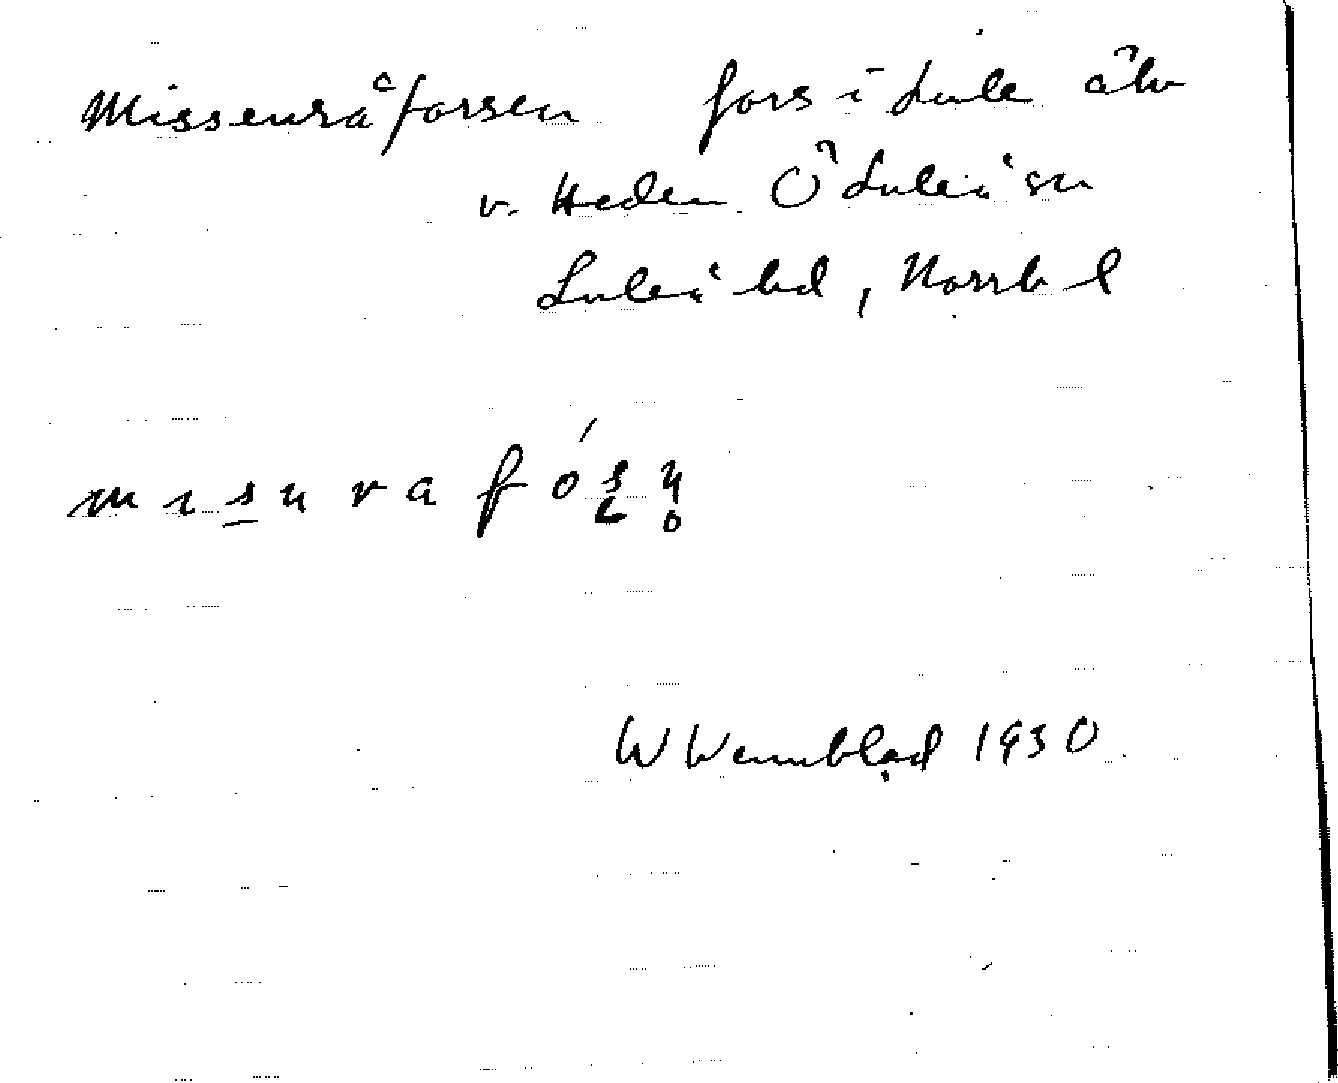 Missensråforsen fors i Lule älv
v. Heden Ö Luleå sn
Luleå hd, Norrb l
misnrafósn̥
W Wennblad 1930